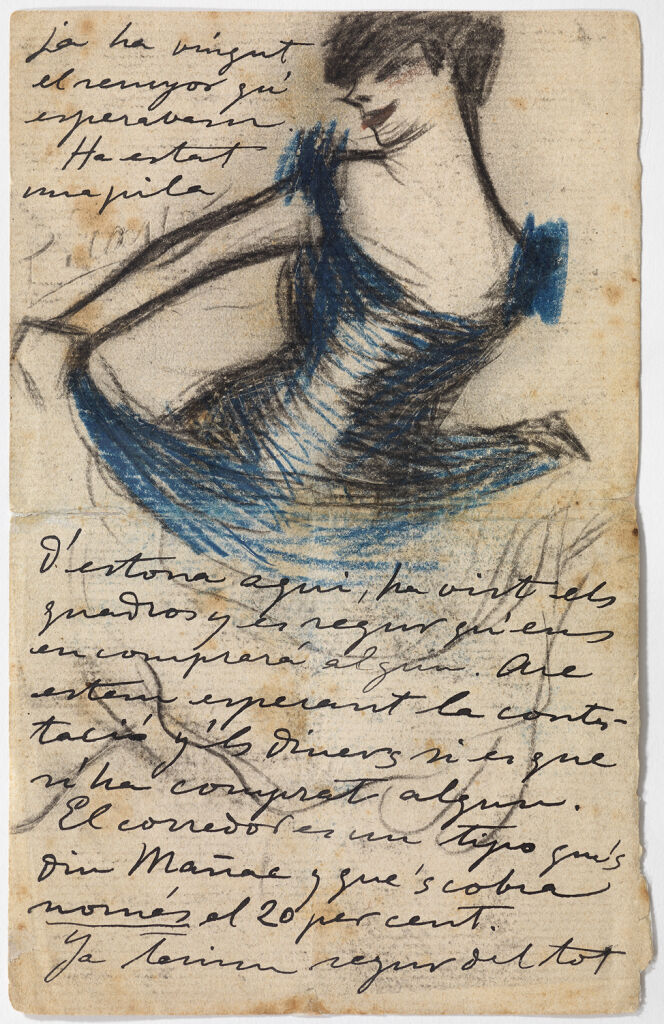 Ja ha vingut
el senyor qu'
esperavem.
Ha estat
una pila
d'estona aquí, ha vist els
quadros y es segur qu'ens
en comprará algun. Are
estem esperant la contes-
tació y'ls diners si es que
n'ha comprat algun.
El corredor es un tipo qu'es
diu Mañac y que's cobra
només el 20 per cent.
Ja tenim segur del tot